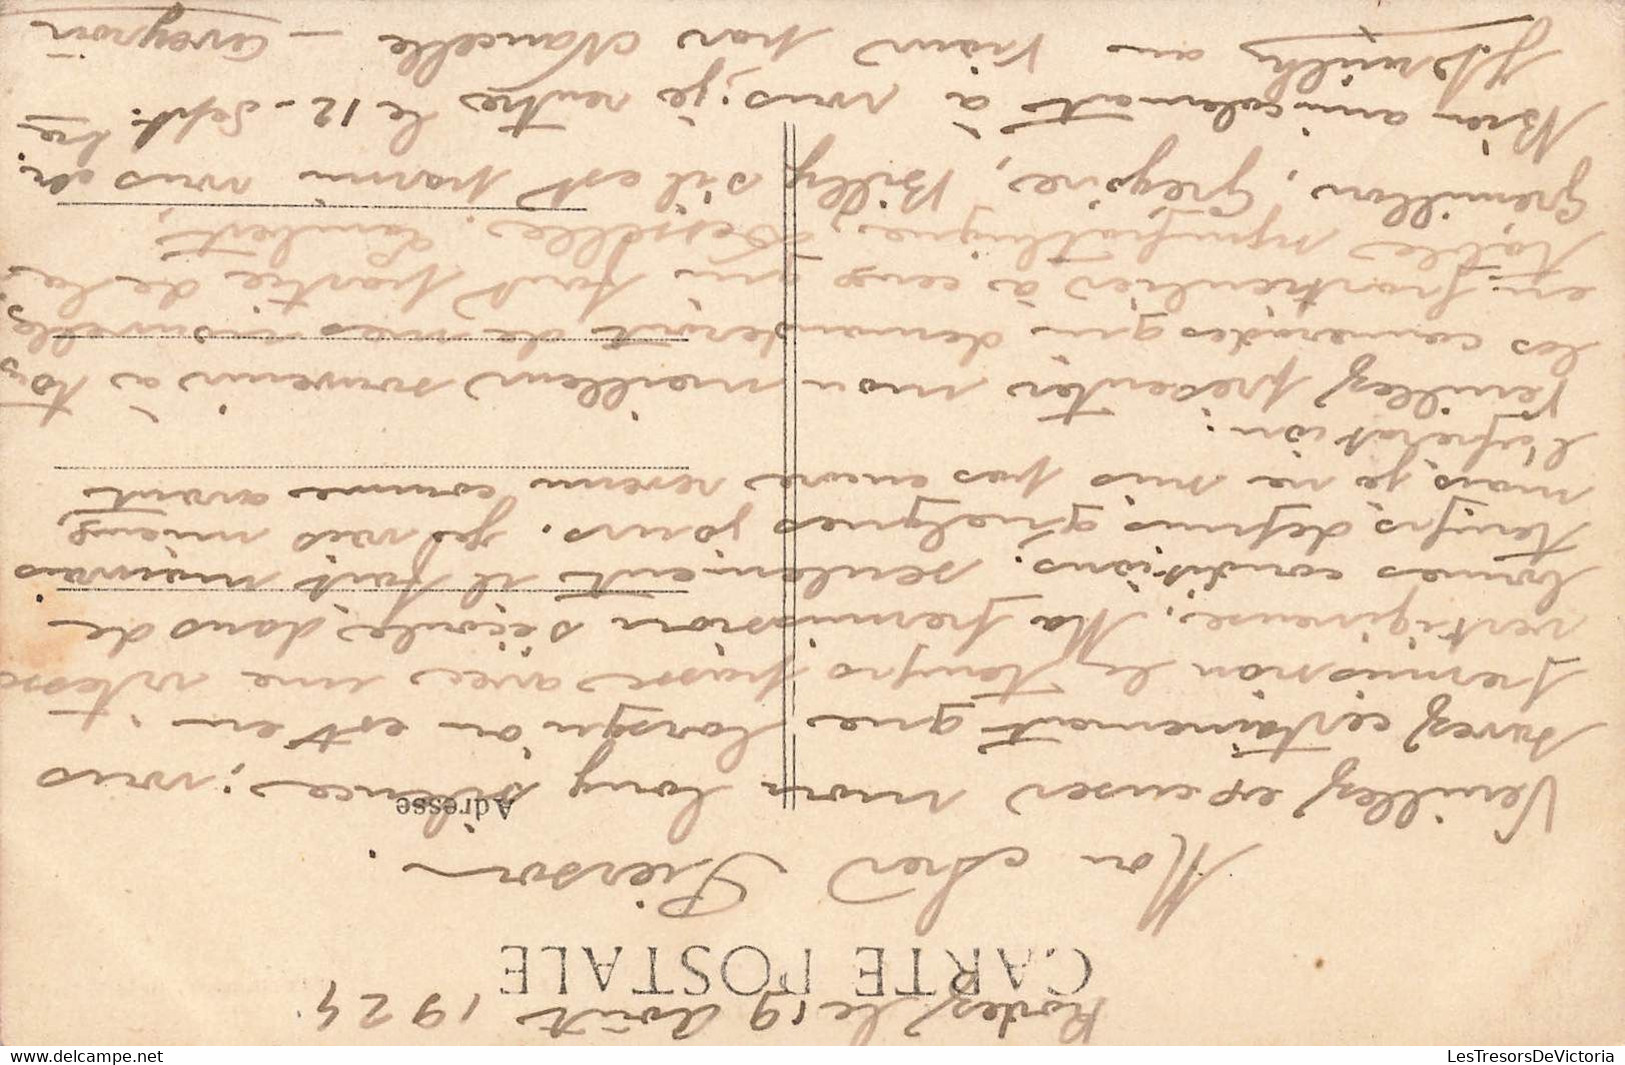 Rodez, le 19 Août 1924
CARTE POSTALE
Mon cher Pierson.
Adresse
Veuillez excuser mon long silence ; vous
savez certainement que lorsqu'on est en
permission le temps passe avec une vitesse
vertigineuse. Ma permission s'écoule dans de
bonnes conditions. seulement il fait mauvais
temps depuis quelques jours. Je vais mieux
mais je ne suis pas encore revenu comme avant
l'opération.
Veuillez présenter mon meilleur souvenir à tous
les camarades qui demanderont de mes nouvelles,
en particulier à ceux qui font partie de la
table sympathique, Desselle, Lambert,
Gremillon, Grégoire, Billy s'il est parmi vous
Bien amicalement à vous, je rentre le 12 Sept.
au Viaur par Naucelle - Aveyron
LesTresorsDeVictoria
delcampe.net